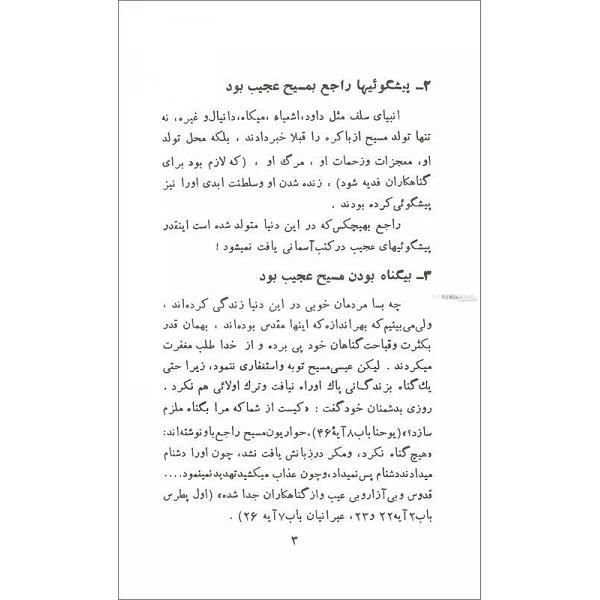 ۲ـ پیشگوئیها راجع بمسیح عجیب بود
انبیای سلف مثل داود،اشعیاء ،میکاه،دانیال‌و غیره، نه
تنها تولد مسیح ازباکره را قبلا خبردادند ، بلکه محل تولد
او، معجزات وزحمات او ، مرگ او ، (که لازم بود برای
گناهکاران فدیه شود) ، زنده شدن او وسلطنت ابدی اورا نیز
پیشگوئی‌کرده بودند .
راجع بهیچکس‌که در این دنیا متولد شده است اینقدر
پیشگوئیهای عجیب درکتب‌آسمانی یافت نمیشود !
۳ـ بیگناه بودن مسیح عجیب بود
چه بسا مردمان خوبی در این دنیا زندگی کرده‌اند ،
ولی‌می‌بینیم‌که بهراندازه‌که اینها مقدس بوده‌اند ، بهمان قدر
بکثرت وقباحت‌گناهان خود پی برده و از خدا طلب مغفرت
میکردند . لیکن عیسی‌مسیح توبه واستغفاری ننمود، زیرا حتی
یك‌گناه بزندگانی پاك اوراه نیافت وترك اولائی هم نکرد .
روزی بدشمنان خودگفت : «کیست از شماکه مرا بگناه ملزم
سازد؟»(یوحناباب۸آیهٔ۴۶).حواریون‌مسیح راجع‌باونوشته‌اند:
«هیچ‌گناه نکرد، ومکر درزبانش یافت نشد، چون اورا دشنام
میدادنددشنام پس‌نمیداد،وچون عذاب میکشیدتهدیدنمینمود....
قدوس و بی‌آزاروبی عیب وازگناهکاران جدا شده» (اول پطرس
باب۲آیه۲۲ و۲۳، عبرانیان باب۷آیه ۲۶) .
۳